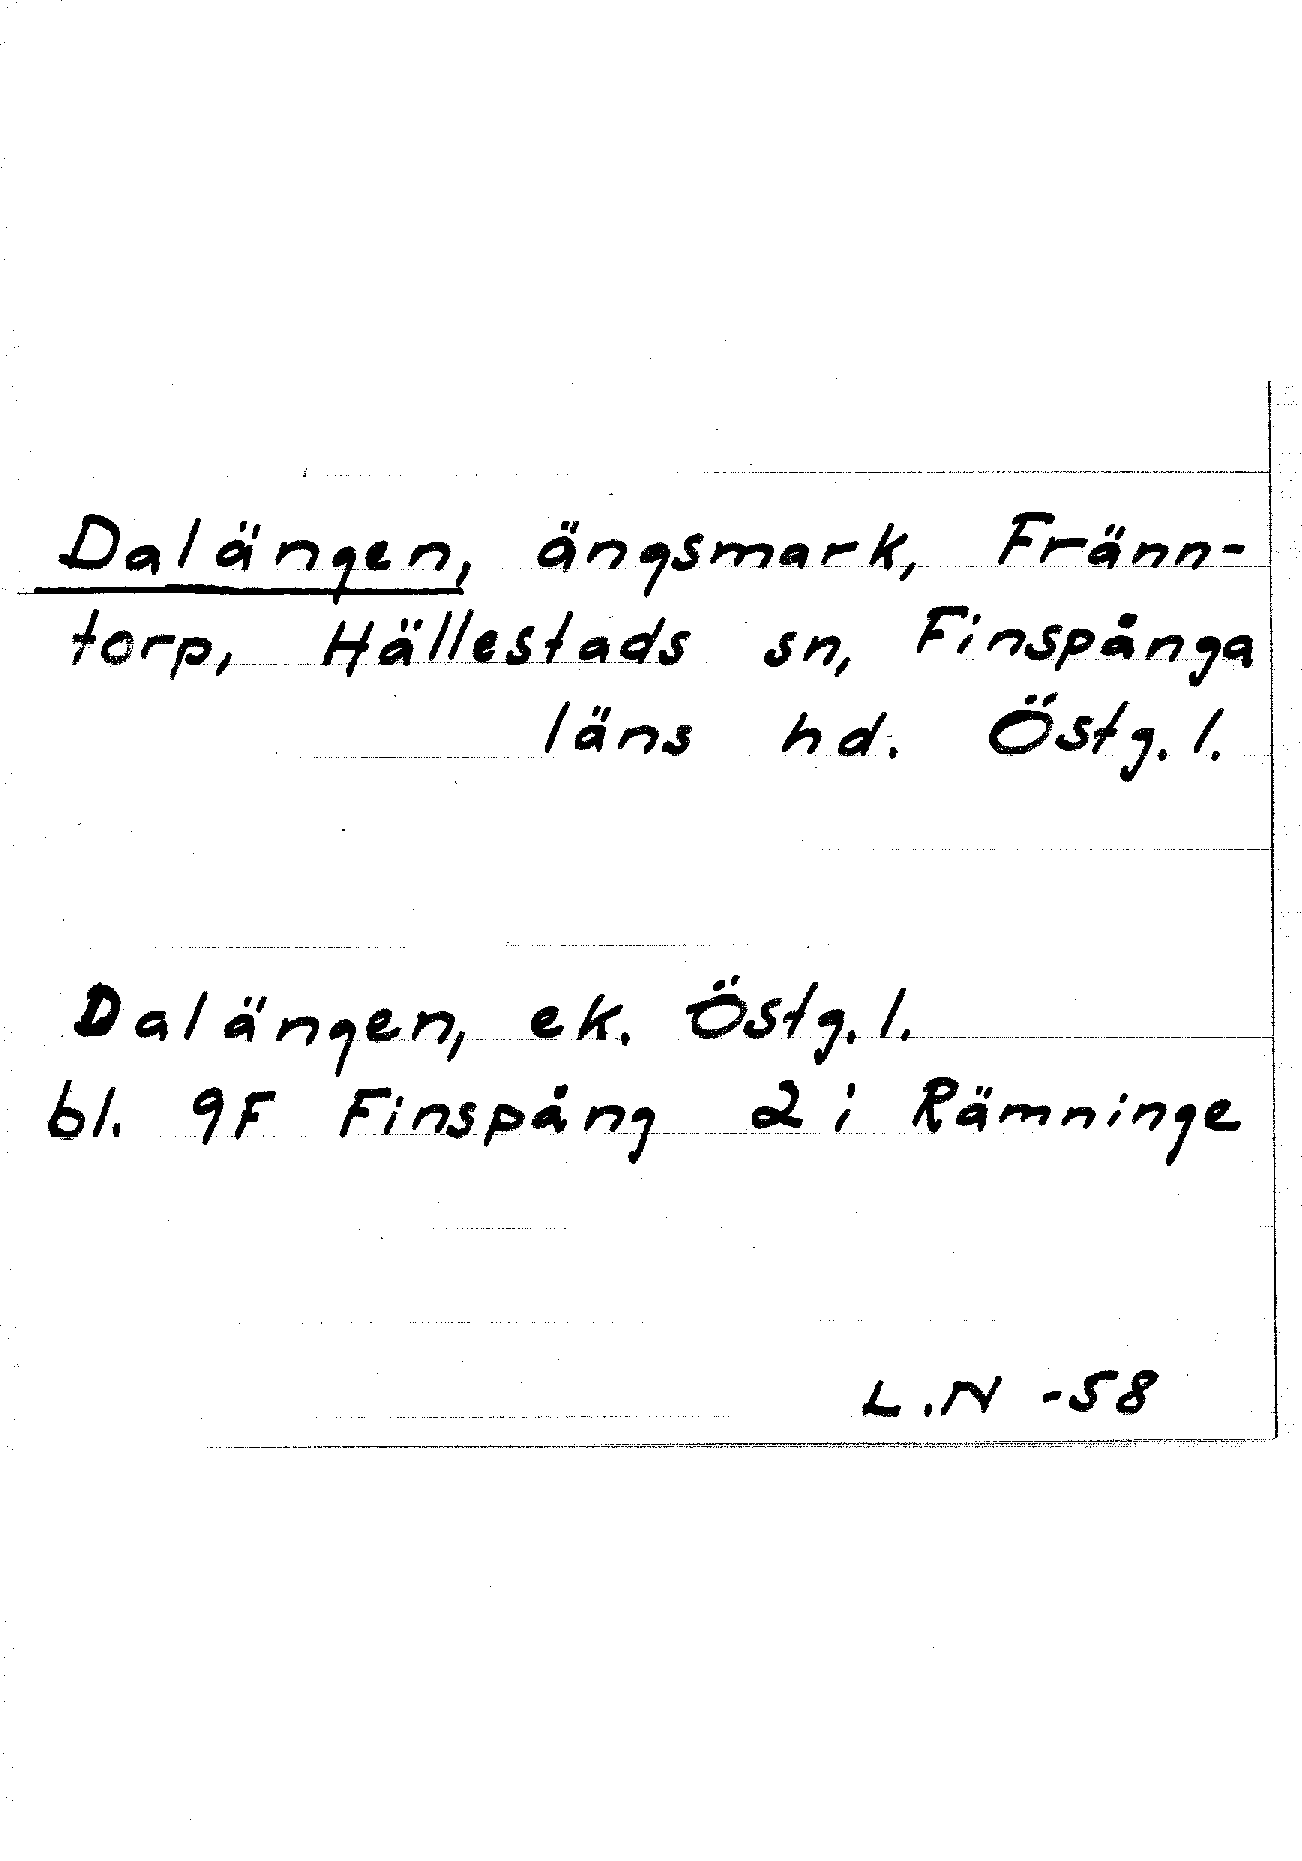 Dalängen, ängsmark, Fränn-
torp, Hällestads sn, Finspånga
läns hd. Östg. l.
Dalängen, ek. Östg. l.
bl. 9F Finspång 2 i Rämninge
L.N -58